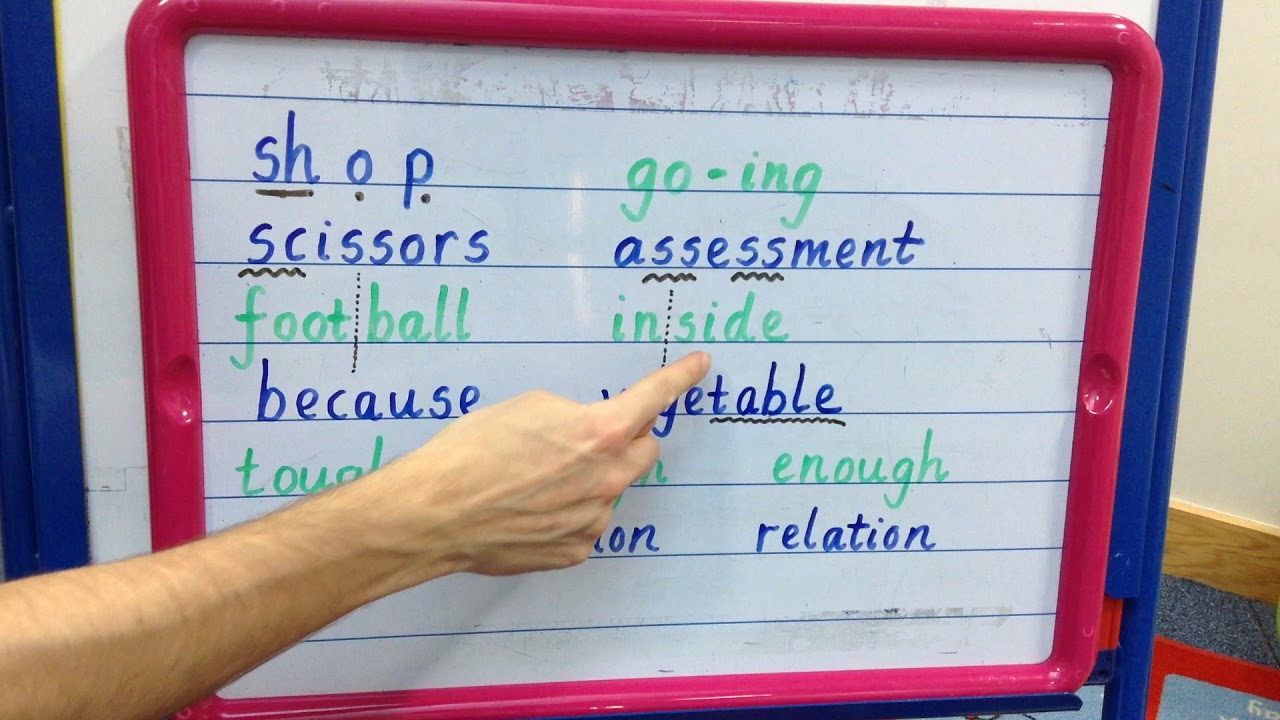 sh o p go-ing
scissors assessment
football inside
because vegetable
enough
relation